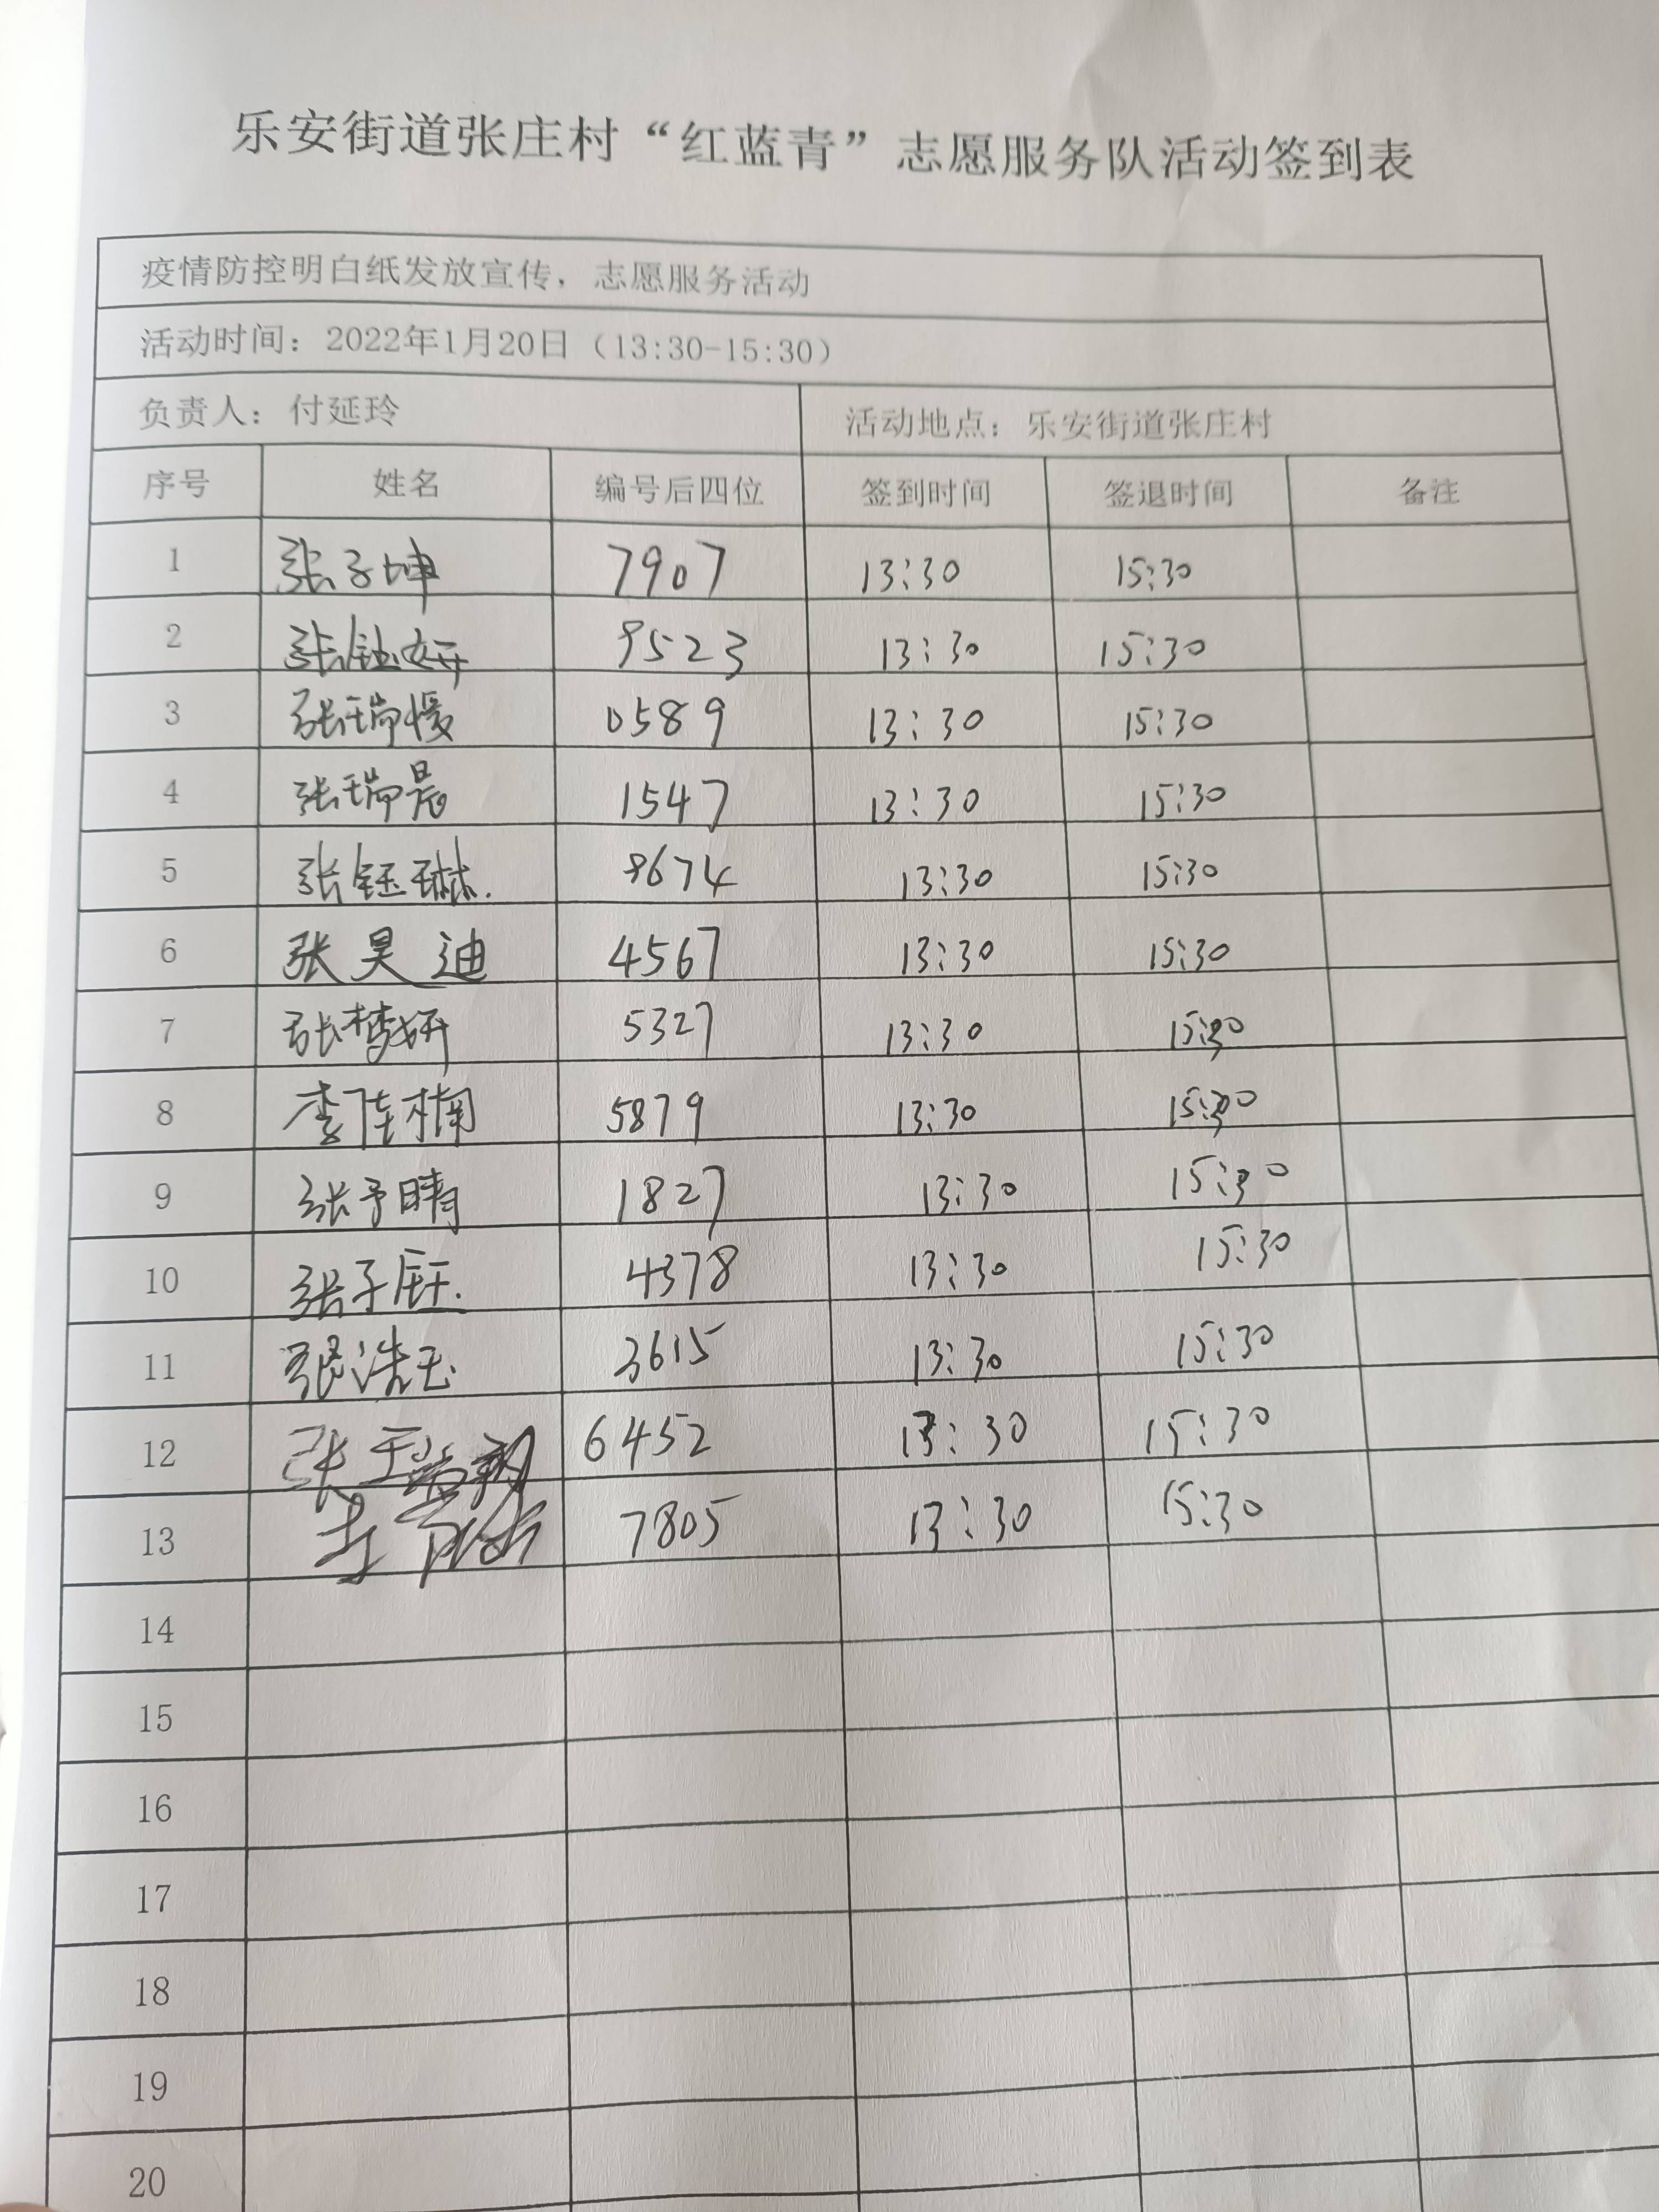 乐安街道张庄村“红蓝青”志愿服务队活动签到表
疫情防控明白纸发放宣传，志愿服务活动
活动时间：2022年1月20日（13:30-15:30）
负责人：付延玲 活动地点：乐安街道张庄村
序号 姓名 编号后四位 签到时间 签退时间 备注
1 张子坤 7907 13:30 15:30
2 张钰妍 9523 13:30 15:30
3 张瑞媛 0589 13:30 15:30
4 张瑞晨 1547 13:30 15:30
5 张钰琳. 8674 13:30 15:30
6 张昊迪 4567 13:30 15:30
7 张梦妍 5327 13:30 15:30
8 李佳楠 5879 13:30 15:30
9 张予晴 1827 13:30 15:30
10 张子钰. 4378 13:30 15:30
11 张浩玉 3615 13:30 15:30
12 张 6452 13:30 15:30
13 7805 13:30 15:30
14
15
16
17
18
19
20